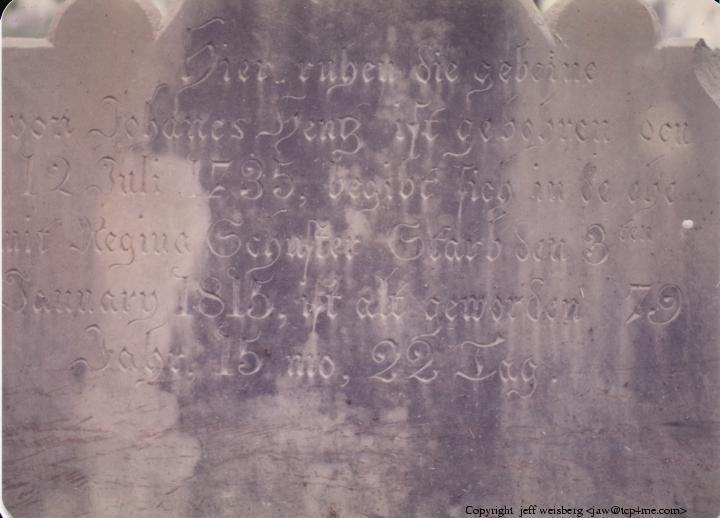 Hier ruhen die gebeine
von Johanes Hentz ist gebohren den
12 Juli 1735, begibt sich in de ehe
mit Regina Schuster Starb den 3ten
January 1815, ist alt geworden 79
Jahr, 15 mo, 22 Tag.
Copyright jeff weisberg <jaw@tcp4me.com>